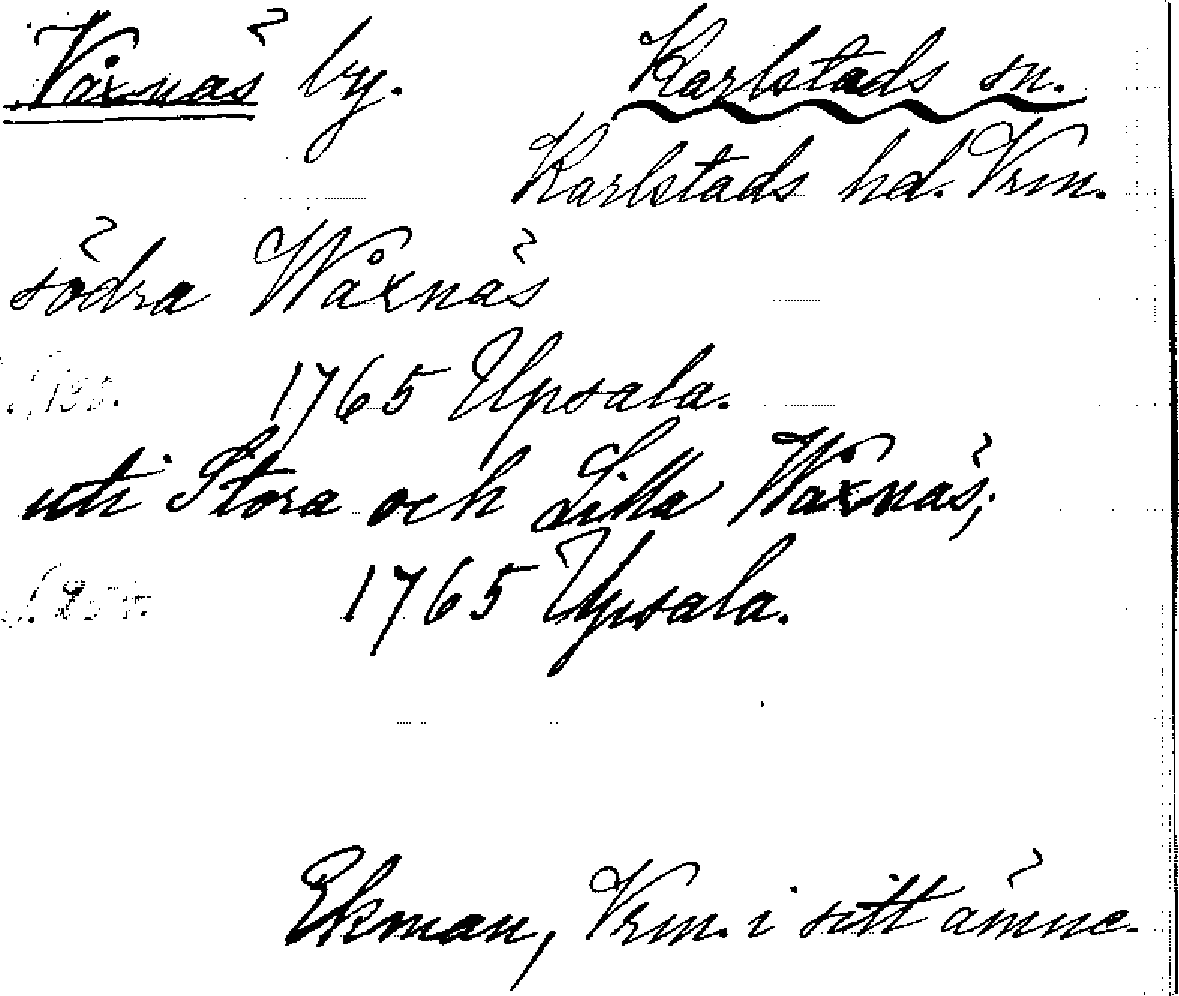 Våxnäs by. Karlstads sn.
Karlstads hd. Vrm.
södra Wåxnäs
1765 Upsala.
uti Stora och Lilla Wåxnäs;
1765 Upsala.
Ekman, Vrm. i sitt ämne.